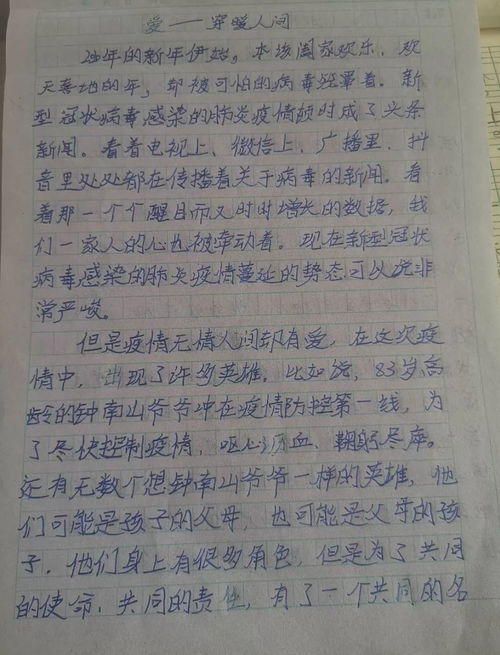 爱——穿暖人间
年的新年伊始。本该阖家欢乐、欢
天喜地的年，却被可怕的病毒笼罩着。新
型冠状病毒感染的肺炎疫情顿时成了头条
新闻。看着电视上、微信上、广播里、抖
音里处处都在传播着关于病毒的新闻。看
着那一个个醒目而又时时增长的数据，我
们一家人的心也被牵动着。现在新型冠状
病毒感染的肺炎疫情蔓延的势态可以说非
常严峻。
但是疫情无情人间却有爱，在这次疫
情中，出现了许多英雄。比如说，83岁高
龄的钟南山爷爷冲在疫情防控第一线，为
了尽快控制疫情，呕心沥血、鞠躬尽瘁。
还有无数个想钟南山爷爷一样的英雄，他
们可能是孩子的父母，也可能是父母的孩
子，他们身上有很多角色，但是为了共同
的使命，共同的责任，有了一个共同的名